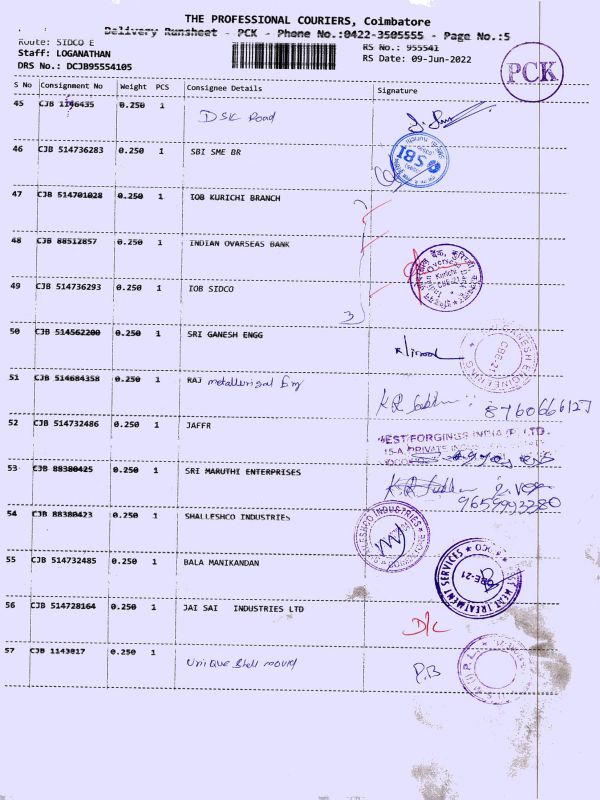 THE PROFESSIONAL COURIERS, Coimbatore
Delivery Runsheet - PCK - Phone No.:0422-3505555 - Page No.:5
Route: SIDCO E RS No.: 955541
Staff: LOGANATHAN RS Date: 09-Jun-2022
DRS No.: DCJB95554105
PCK
S No Consignment No Weight PCS Consignee Details Signature
45 CJB 1146435 0.250 1 DSK Road
46 CJB 514736283 0.250 1 SBI SME BR
SBI
47 CJB 514701028 0.250 1 IOB KURICHI BRANCH
48 CJB 88512857 0.250 1 INDIAN OVARSEAS BANK
49 CJB 514736293 0.250 1 IOB SIDCO
3
50 CJB 514562200 0.250 1 SRI GANESH ENGG
GANESH ENGINEERING CBE-21
51 CJB 514684358 0.250 1 RAJ metallurgical
8760666127
52 CJB 514732486 0.250 1 JAFFR
WEST FORGINGS INDIA (P) LTD.
53 CJB 88380425 0.250 1 SRI MARUTHI ENTERPRISES
9659993280
54 CJB 88380423 0.250 1 SHALLESHCO INDUSTRIES
INDUSTRIES
55 CJB 514732485 0.250 1 BALA MANIKANDAN
HEAT TREATMENT SERVICES CBE-21
56 CJB 514728164 0.250 1 JAI SAI INDUSTRIES LTD D/c
57 CJB 1143817 0.250 1 Unique Shell mould P.B